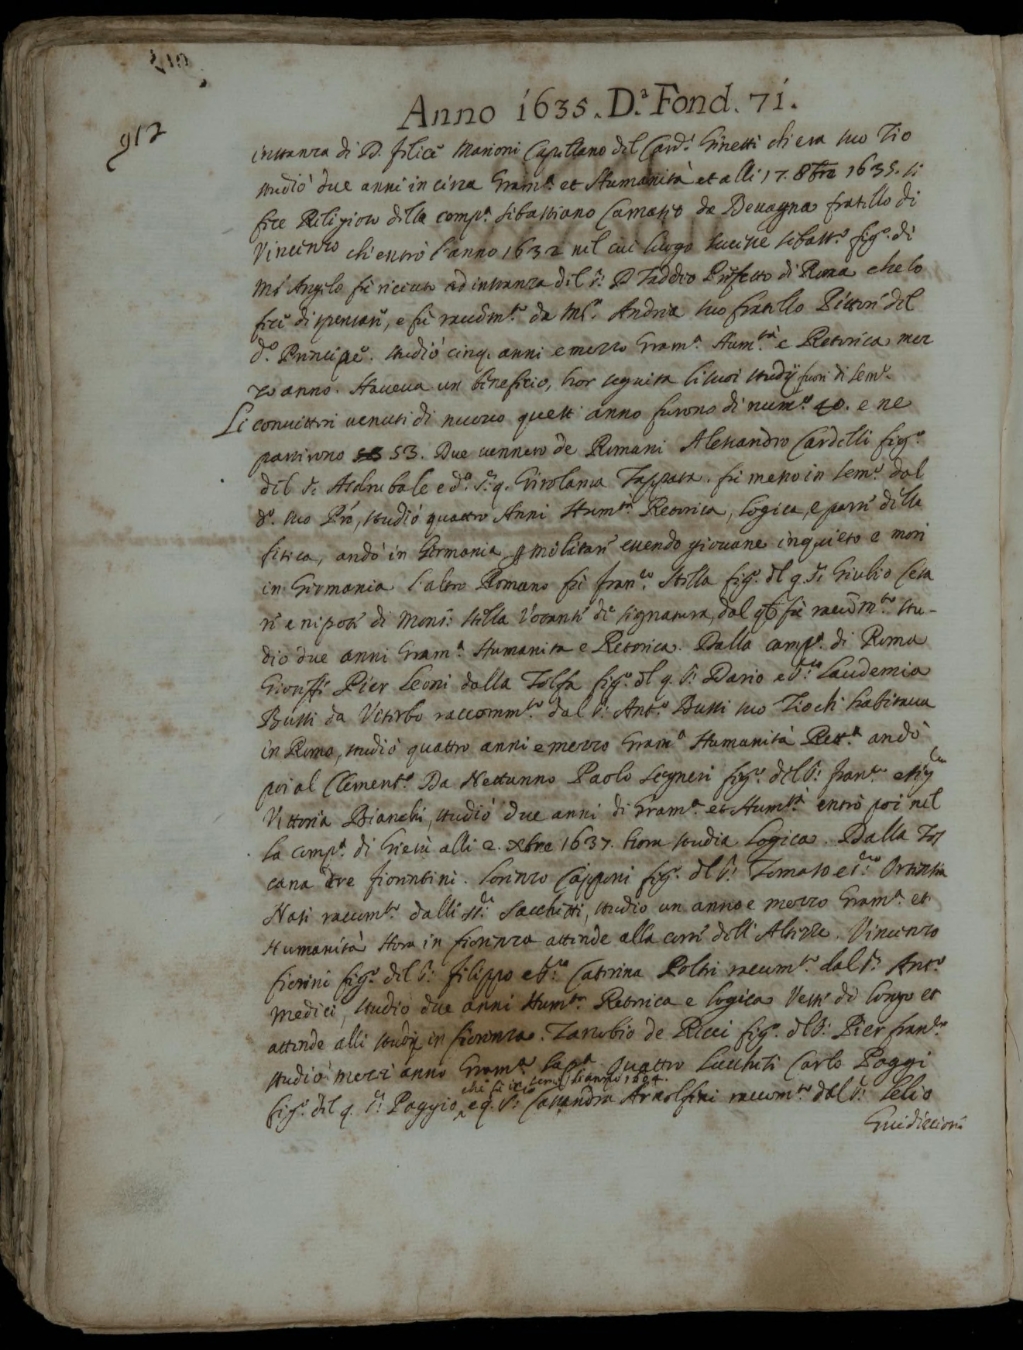 912
Anno 1635. D.ª Fond. 71.
instanza di D. felice Marioni Capellano del Card. Ginetti ch'era suo Zio
studiò due anni in circa Gram.ª et Humanità et alli 17. 8bre 1635. si
fece Religioso della comp.ª Sebastiano Camassio da Bevagna fratello di
Vincenzo ch'entrò l'anno 1632 nel cui luogo successe Sebast.º fig.º di
Mº Angelo fu riceuto ad instanza del S.r D Taddeo Prefetto di Roma che lo
fece dispensare, e fu racōm.to da Mr. Andrea suo fratello Pittore del
d.º Principe. studiò cinq. anni e mezzo Gram.ª Hum.tà e Retorica mez
zo anno. Haveva un beneficio, hor seguita li suoi studÿ fuori di sem.º
Li convittori venuti di nuovo quest'anno furono di num.º 40. e ne
partirono 53. Due vennero de Romani Alessandro Cardelli fig.º
del S.r Asdrubale e d.ª S.ra q. Girolama fu messo in sem.º dal
d.º suo Pre, studiò quattro Anni Hum.tà Retorica, Logica, e parte della
fisica, andò in Germania p militare essendo giovane inquieto e morì
in Germania l'altro Romano fù fran.co Stella fig.º del q. S.r Giulio Cesa
re e nipote di Mons.r Stella Votante di Signatura, dal qle fù racōm.to stu-
diò due anni Gram.ª Humanità e Retorica. Dalla camp.ª di Roma
Pier Leoni dalla Tolfa fig.º del q. S.r Dario e S.ra Laudemia
Bussi da Viterbo raccomm.to dal S.r Ant.º Bussi suo Zio ch'habitava
in Roma, studiò quattro anni e mezzo Gram.ª Humanità Rett.ª andò
poi al Clement.º Da Nettunno Paolo Segneri fig.º del S.r fran.co e Sig.ra
Vittoria Bianchi, studiò due anni di Gram.ª et Hum.tà entrò poi nel
la comp.ª di Giesù alli 2. xbre 1637. hora studia Logica. Dalla Tos
cana tre fiorentini. Lorenzo Capponi fig.º del S.r Tomaso e S.ra Ortensia
Nasi racom.to dalli SS.ri Sacchetti, studiò un anno e mezzo Gram.ª et
Humanità Hora in fiorenza attende alla corte dell'Altezze. Vincenzo
fiorini fig.º del S.r filippo e S.ra Caterina Poltri racom.to dal S.r Ant.º
Medici, studiò due anni Hum.tà Retorica e Logica Veste di longo et
attende alli studÿ in fiorenza. Zanobio de Ricci fig.º del S.r Pier fran.co
studiò mezz'anno Gram.ª Quattro Lucchesi Carlo Poggi
che fu in sem.º l'anno 1634.
fig.º del q. S.r Poggio, e q. S.ra Cassandra Arnolfini racom.to dal S.r Lelio
Guidiccioni